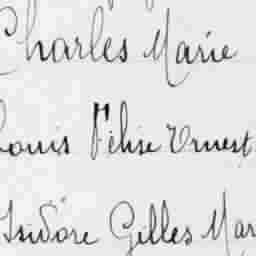 Charles Marie
Louis Félise Ernest
Isidore Gilles Mar